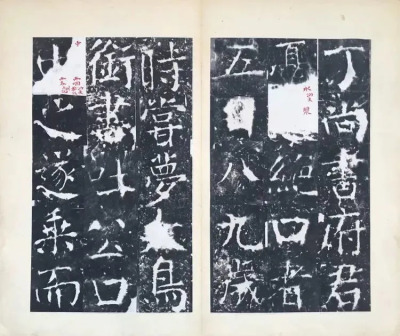 丁尚書府君
憂水漿絕口者
五日八九歲
時嘗夢大鳥
銜書吐公口
中
之遂乘而